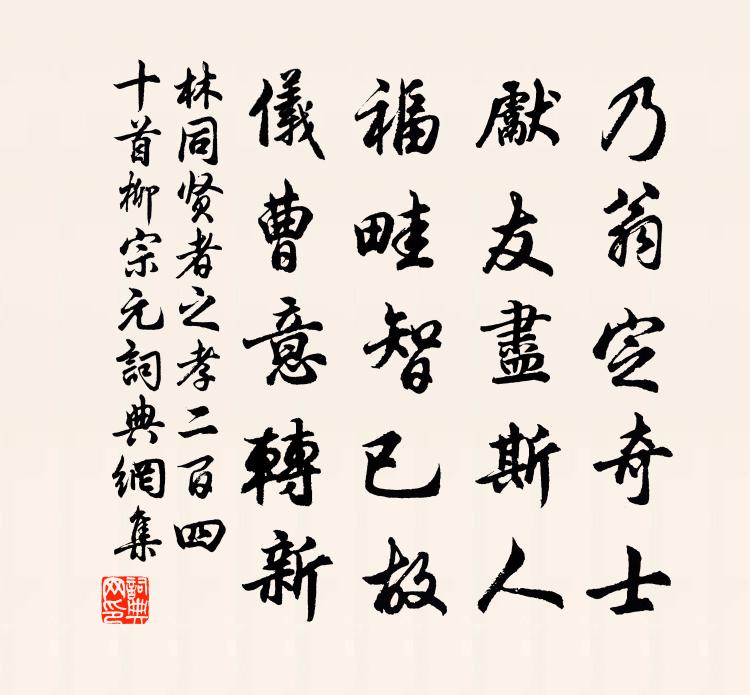 乃翁定奇士
獻友盡斯人
福畦智已故
儀曹意轉新
林同贤者之孝二百四
十首柳宗元詞典網集
詞典网印